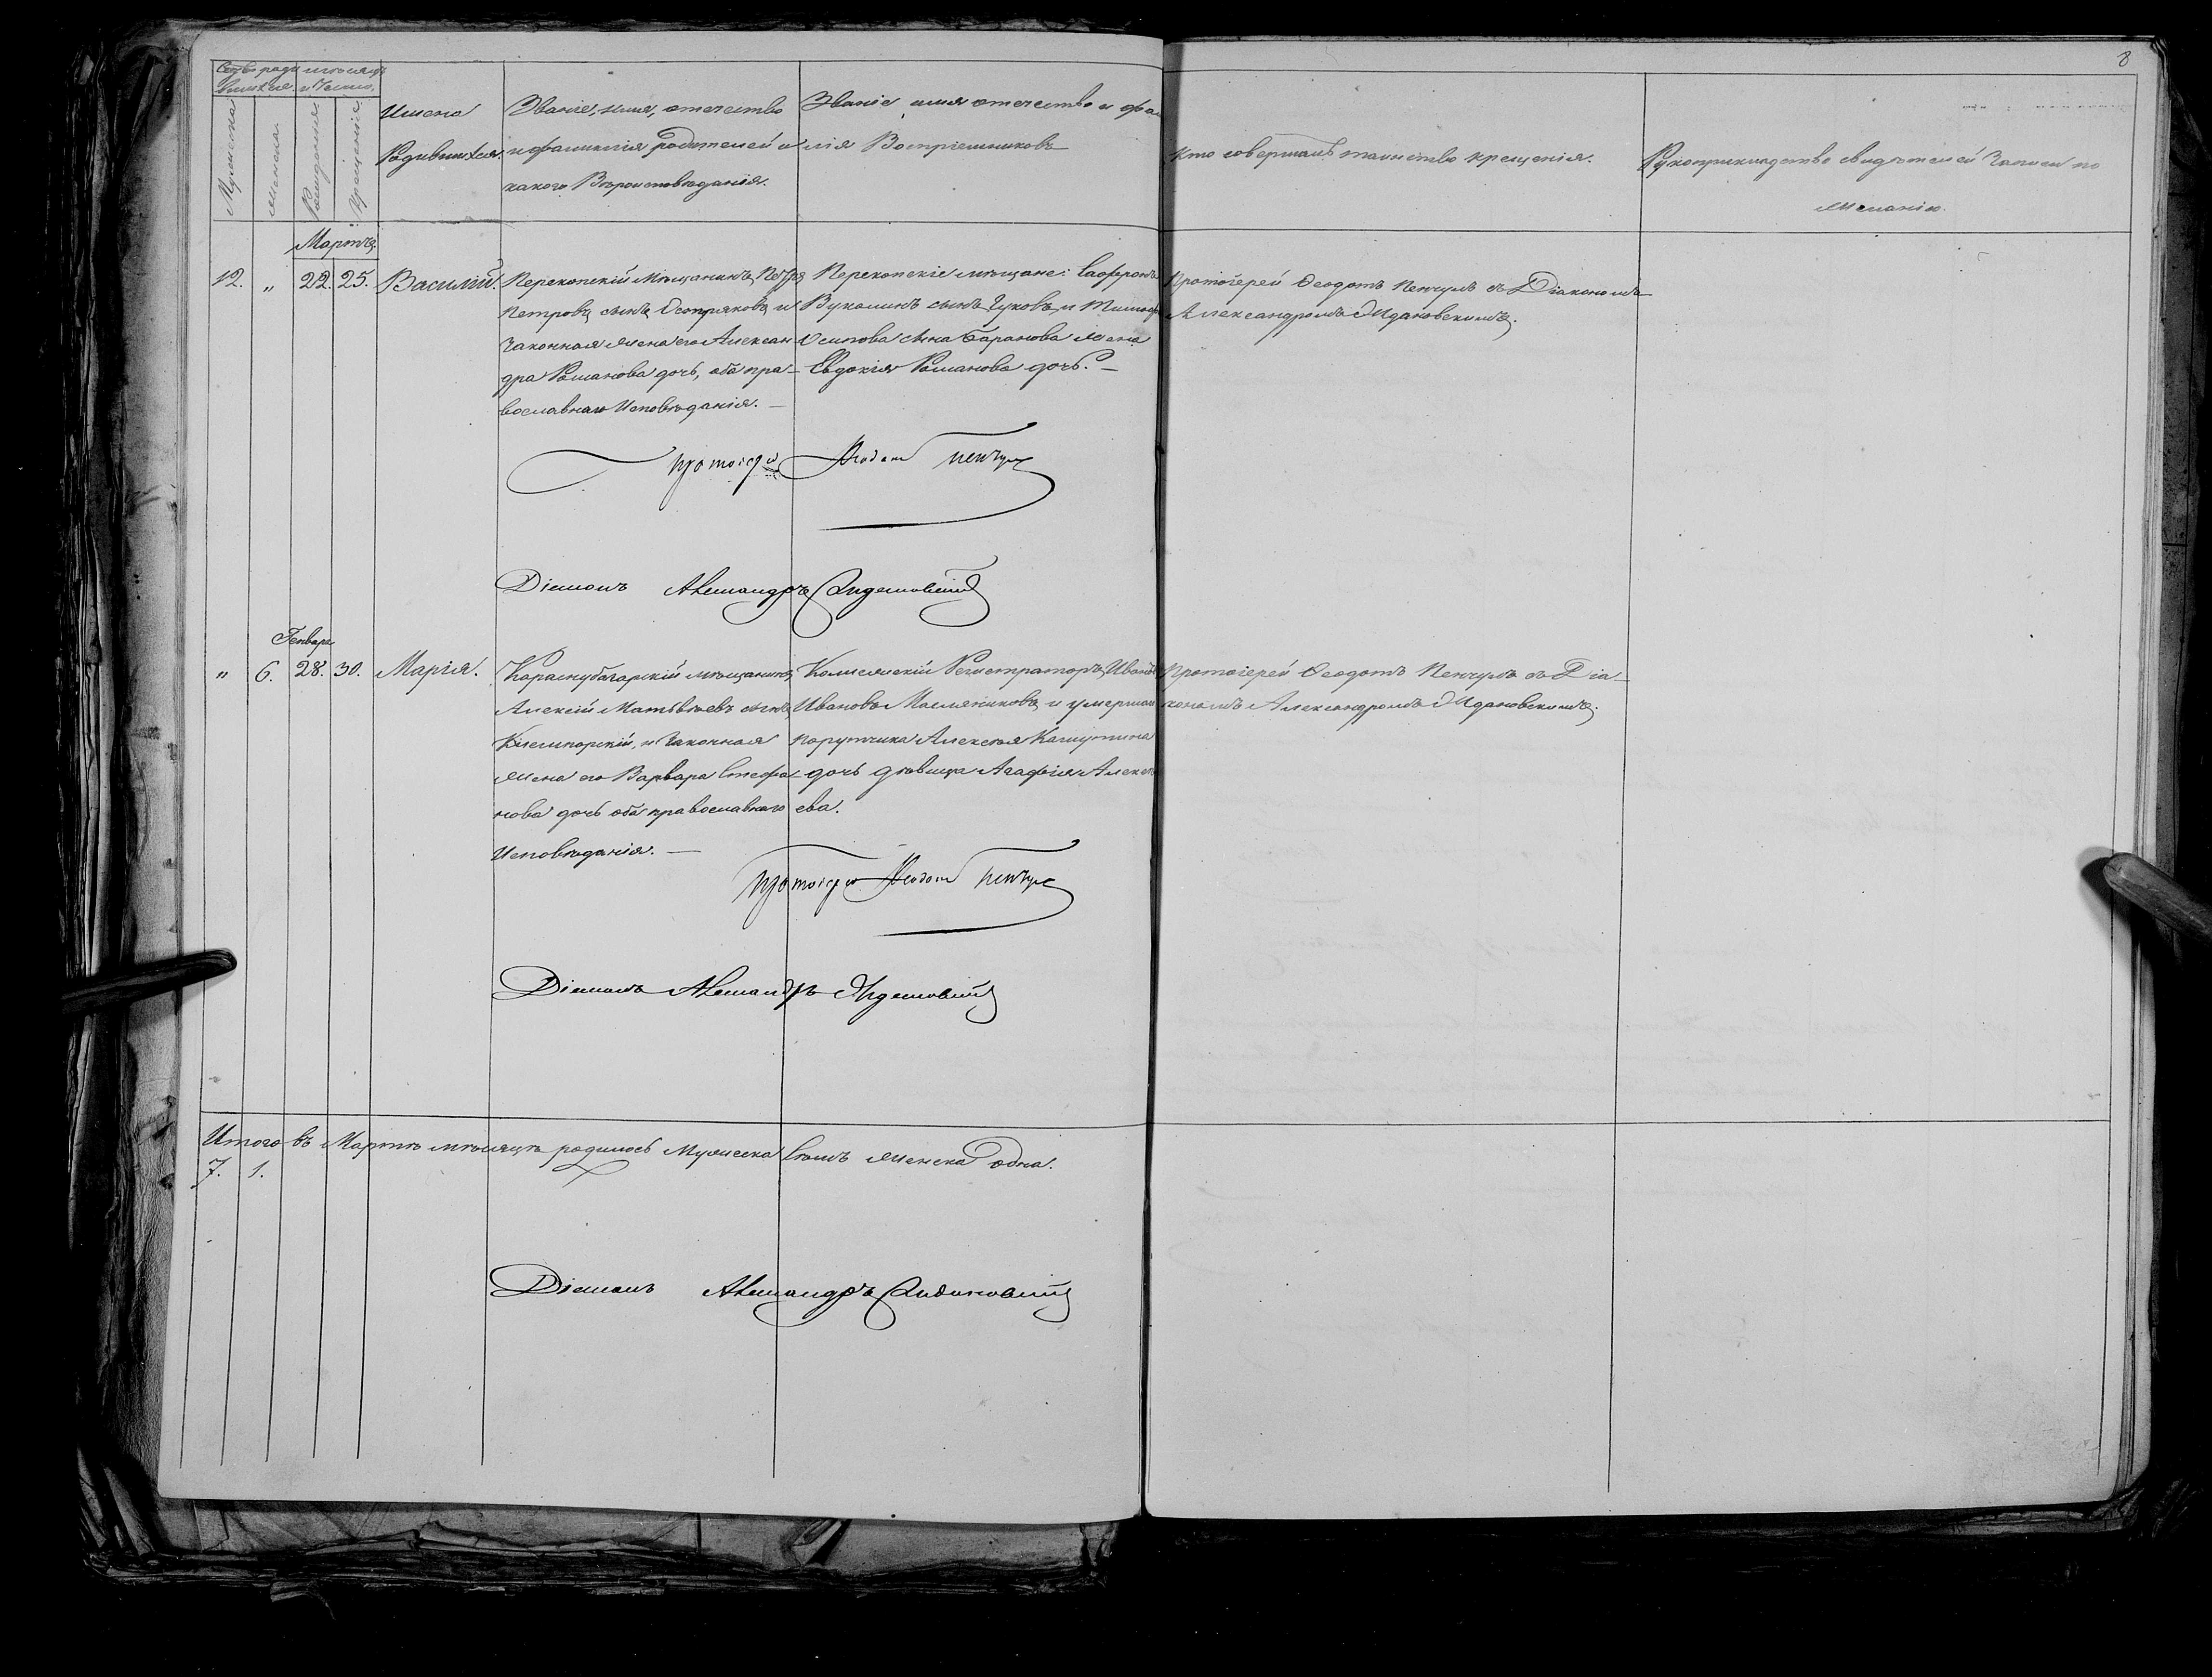 8
Счетъ роди мѣсяцъ
вшихся. и число.
Мужеска
Женска.
Рожденія
Крещенія.
Имена
Родившихся.
Званіе, имя, отечество
и фамилія родителей и
какого Вѣроисповѣданія.
Званіе имя отечество и фа
лія Воспріемниковъ
Кто совершалъ таинство крещенія.
Рукоприкладство свидѣтелей записи по
желанію.
Мартъ.
12. „ 22. 25. Василій.
Перекопскій Мѣщанинъ Петръ
Петровъ сынъ и
законная жена его Алексан
дра Романова дочь, оба пра-
вославнаго Исповѣданія. —
Перекопскіе мѣщане: Сафронъ
Вуколинъ сынъ Гуковъ и Тимоф
Осипова сына Баранова жена
Евдокія Романова дочь. —
Протоіерей Ѳеодотъ Пенчулъ съ Діакономъ
Александромъ Ждановскимъ.
Протоіерей Ѳеодотъ Пенчулъ
Діаконъ Александръ Ждановскій
Генварь
„ 6. 28. 30. Марія.
Карасубазарскій мѣщанинъ
Алексій Матвѣевъ сынъ
и законная
жена его Варвара Стефа-
нова дочь оба православнаго
Исповѣданія. —
Колежскій Регистраторъ Иванъ
Ивановъ Масляниковъ и умершаг
порутчика Алексѣя Кашутина
дочь дѣвица Агафія Алексѣ
ева.
Протоіерей Ѳеодотъ Пенчулъ съ Діа-
кономъ Александромъ Ждановскимъ.
Протоіерей Ѳеодотъ Пенчулъ
Діаконъ Александръ Ждановскій
Итого въ Мартѣ мѣсяцѣ родилось Мужеска Семь Женска Одна.
7. 1.
Діаконъ Александръ Ждановскій